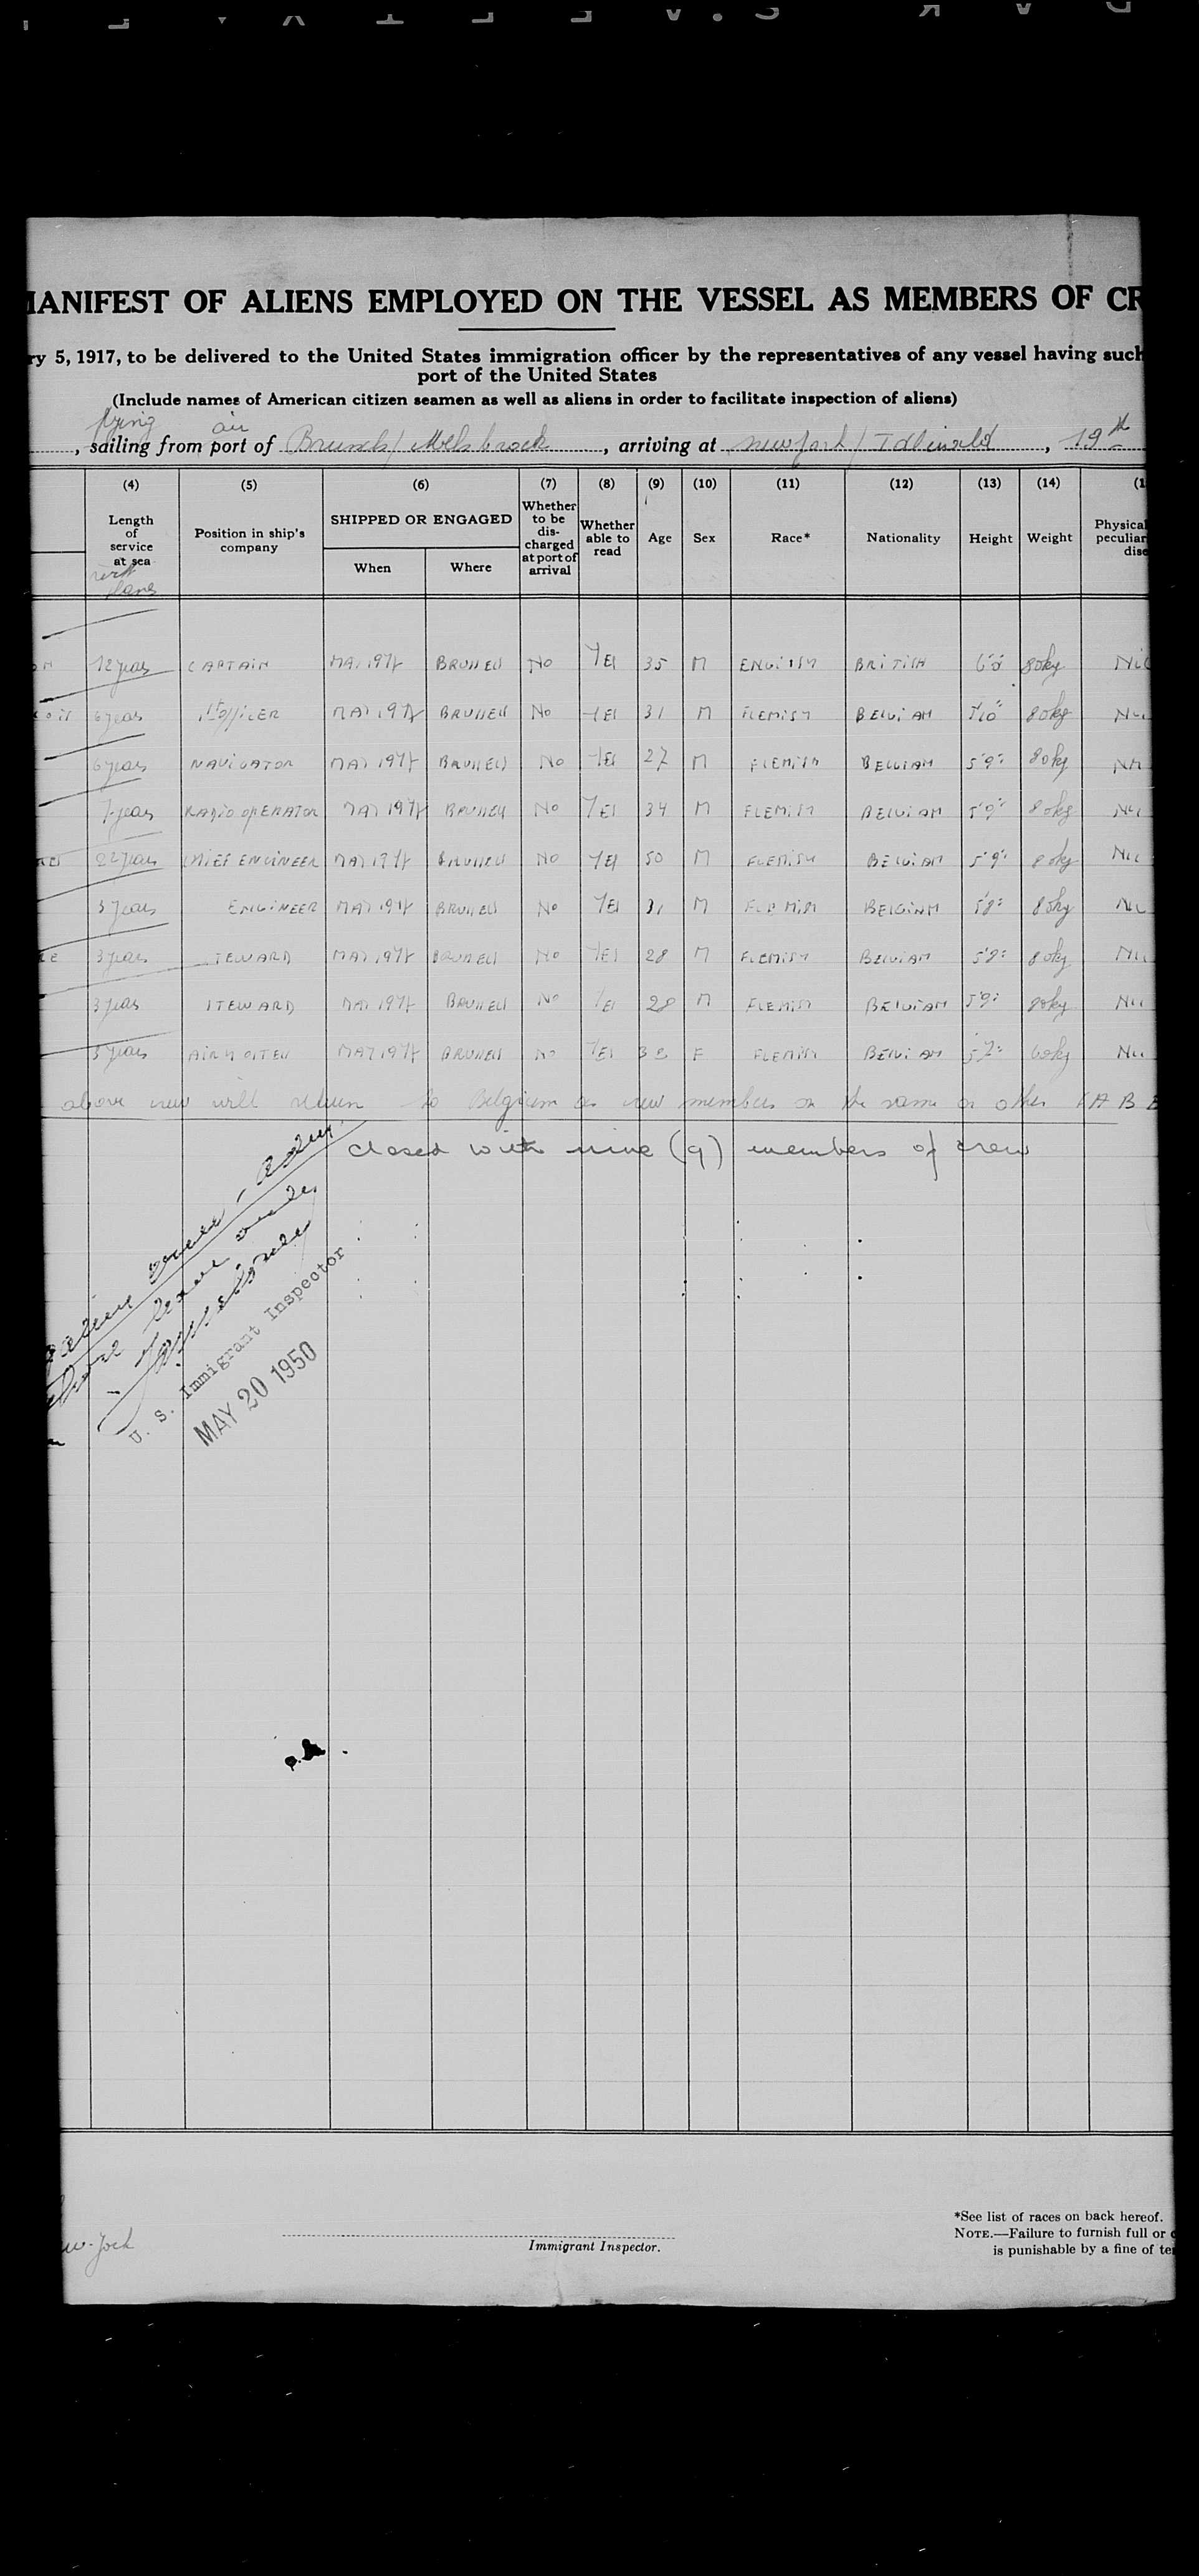 MANIFEST OF ALIENS EMPLOYED ON THE VESSEL AS MEMBERS OF CR
ry 5, 1917, to be delivered to the United States immigration officer by the representatives of any vessel having such
port of the United States
(Include names of American citizen seamen as well as aliens in order to facilitate inspection of aliens)
flying air
, sailing from port of Brussels / Melsbroek , arriving at New York / Idlewild , 19th
(4) (5) (6) (7) (8) (9) (10) (11) (12) (13) (14) (1
Length of service at sea Position in ship's company SHIPPED OR ENGAGED When Where Whether to be discharged at port of arrival Whether able to read Age Sex Race* Nationality Height Weight Physical peculiar dise
with plane
12 years CAPTAIN MAY BRUSSELS No YES 35 M ENGLISH BRITISH 80kg
6 years 1st OFFICER MAY BRUSSELS No YES 31 M FLEMISH BELGIAN 5'10" 80kg
6 years NAVIGATOR MAY BRUSSELS No YES 27 M FLEMISH BELGIAN 5'9" 80kg
7 years RADIO OPERATOR MAY BRUSSELS No YES 34 M FLEMISH BELGIAN 5'9" 80kg
22 years CHIEF ENGINEER MAY BRUSSELS No YES 50 M FLEMISH BELGIAN 5'9" 80kg
3 years ENGINEER MAY BRUSSELS No YES 31 M FLEMISH BELGIAN 5'8" 80kg
3 years STEWARD MAY BRUSSELS No YES 28 M FLEMISH BELGIAN 80kg
3 years STEWARD MAY BRUSSELS No YES 28 M FLEMISH BELGIAN 5'9" 80kg
3 years AIR HOSTESS MAY BRUSSELS No YES F FLEMISH BELGIAN 60kg
above crew will return to Belgium as crew members on the same or other
closed with nine (9) members of crew
U. S. Immigrant Inspector
MAY 20 1950
Immigrant Inspector.
*See list of races on back hereof.
NOTE.—Failure to furnish full or
is punishable by a fine of te